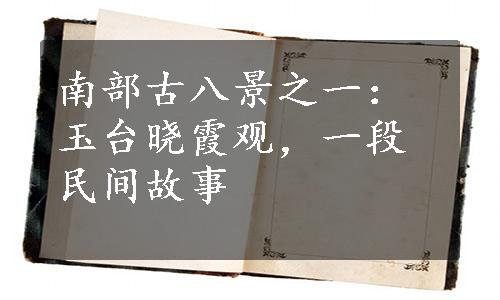 南部古八景之一：
玉台晓霞观，一段
民间故事